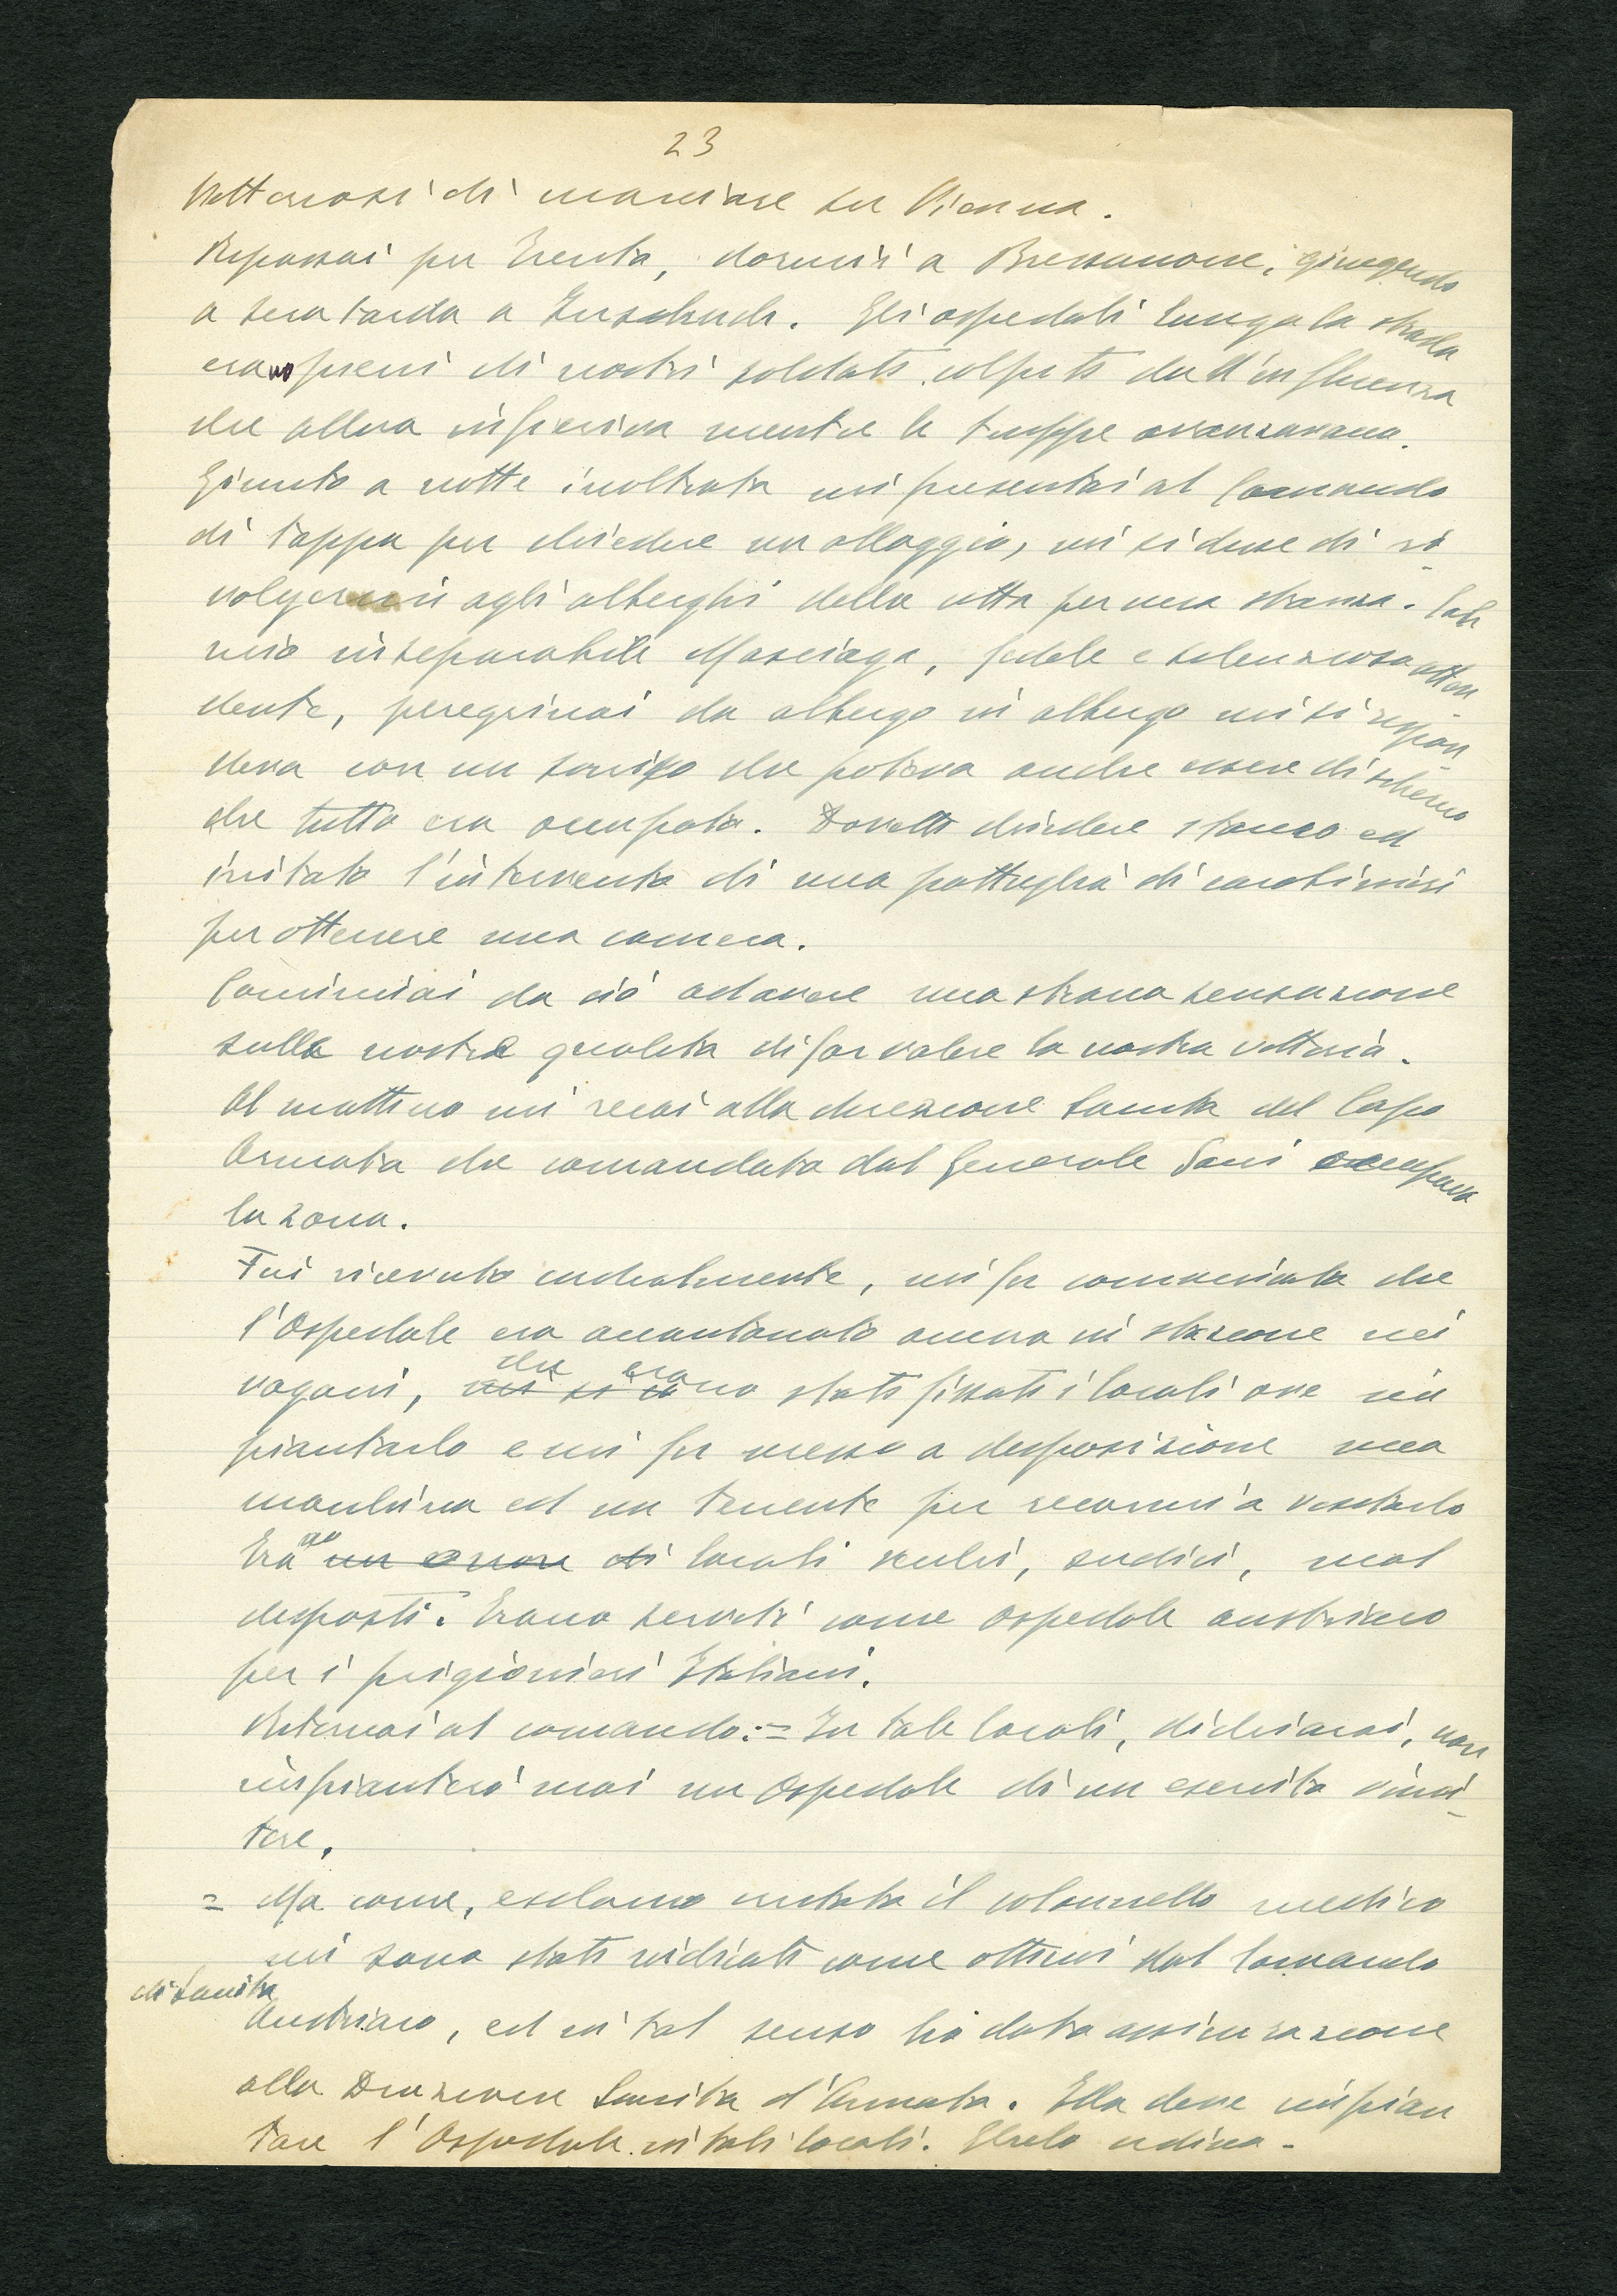 23
Vittoriosi di marciare su Vienna.
Ripassai per Trento, dormii a Bressanone, giungendo
a sera tarda a Innsbruck. Gli ospedali lungo la strada
erano pieni di nostri soldati colpiti dall'influenza
che allora infieriva mentre le truppe avanzavano.
Giunto a notte inoltrata mi presentai al Comando
di tappa per chiedere un alloggio, mi si disse di ri-
volgermi agli alberghi della città per una stanza. Col
mio inseparabile Masciaga, fedele e silenzioso atten
dente, peregrinai da albergo in albergo mi si rispon-
deva con un sorriso che poteva anche essere di scherno
che tutto era occupato. Dovetti chiedere stanco ed
irritato l'intervento di una pattuglia di carabinieri
per ottenere una camera.
Cominciai da ciò ad avere una strana sensazione
sulla nostra qualità di far valere la nostra vittoria.
Al mattino mi recai alla direzione Sanità del Corpo
Armata che comandato dal Generale Sani occupava
la zona.
Fui ricevuto cordialmente, mi fu comunicato che
l'Ospedale era accantonato ancora in stazione nei
vagoni, che erano stati fissati i locali ove im
piantarlo e mi fu messo a disposizione una
macchina ed un tenente per recarmi a visitarlo
Erano un orrore di locali vecchi, sudici, mal
disposti. Erano serviti come ospedale austriaco
per i prigionieri Italiani.
Ritornai al comando: = In tale locali, dichiarai, non
impianterò mai un Ospedale di un esercito vinci-
tore.
= Ma come, esclamò irritato il colonnello medico
mi sono stati indicati come ottimi dal Comando
di Sanità
Austriaco, ed in tal senso ho dato assicurazione
alla Direzione Sanità d'Armata. Ella deve impian
tare l'Ospedale in tali locali. Glielo ordino.